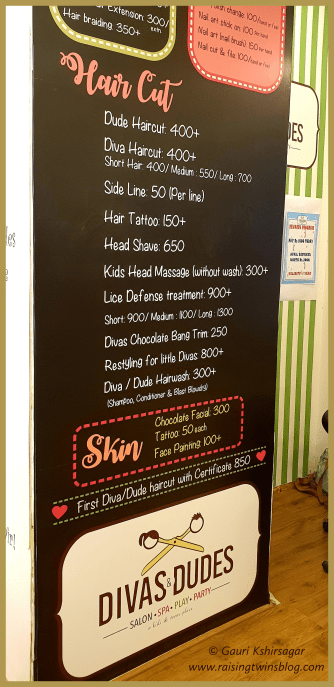 Extension: 300/
Hair braiding: 350+
change: 100/hand or feet
Nail art stick on: 100 per hand
Nail art (nail brush): 150 per hand
Nail cut & file: 100/hand or feet
Hair Cut
Dude Haircut: 400+
Diva Haircut: 400+
Short Hair: 400/ Medium : 550/ Long : 700
Side Line: 50 (Per line)
Hair Tattoo: 150+
Head Shave: 650
Kids Head Massage (without wash): 300+
Lice Defense treatment: 900+
Short: 900/ Medium : 1100/ Long : 1300
Divas Chocolate Bang Trim: 250
Restyling for little Divas: 800+
Diva / Dude Hairwash: 300+
(Shampoo, Conditioner & Blast Blowdry)
Skin
Chocolate Facial: 300
Tattoo: 50 each
Face Painting: 100+
First Diva/Dude haircut with Certificate 850
DIVAS & DUDES
SALON • SPA • PLAY • PARTY
a kids dream place
DES
© Gauri Kshirsagar
www.raisingtwinsblog.com